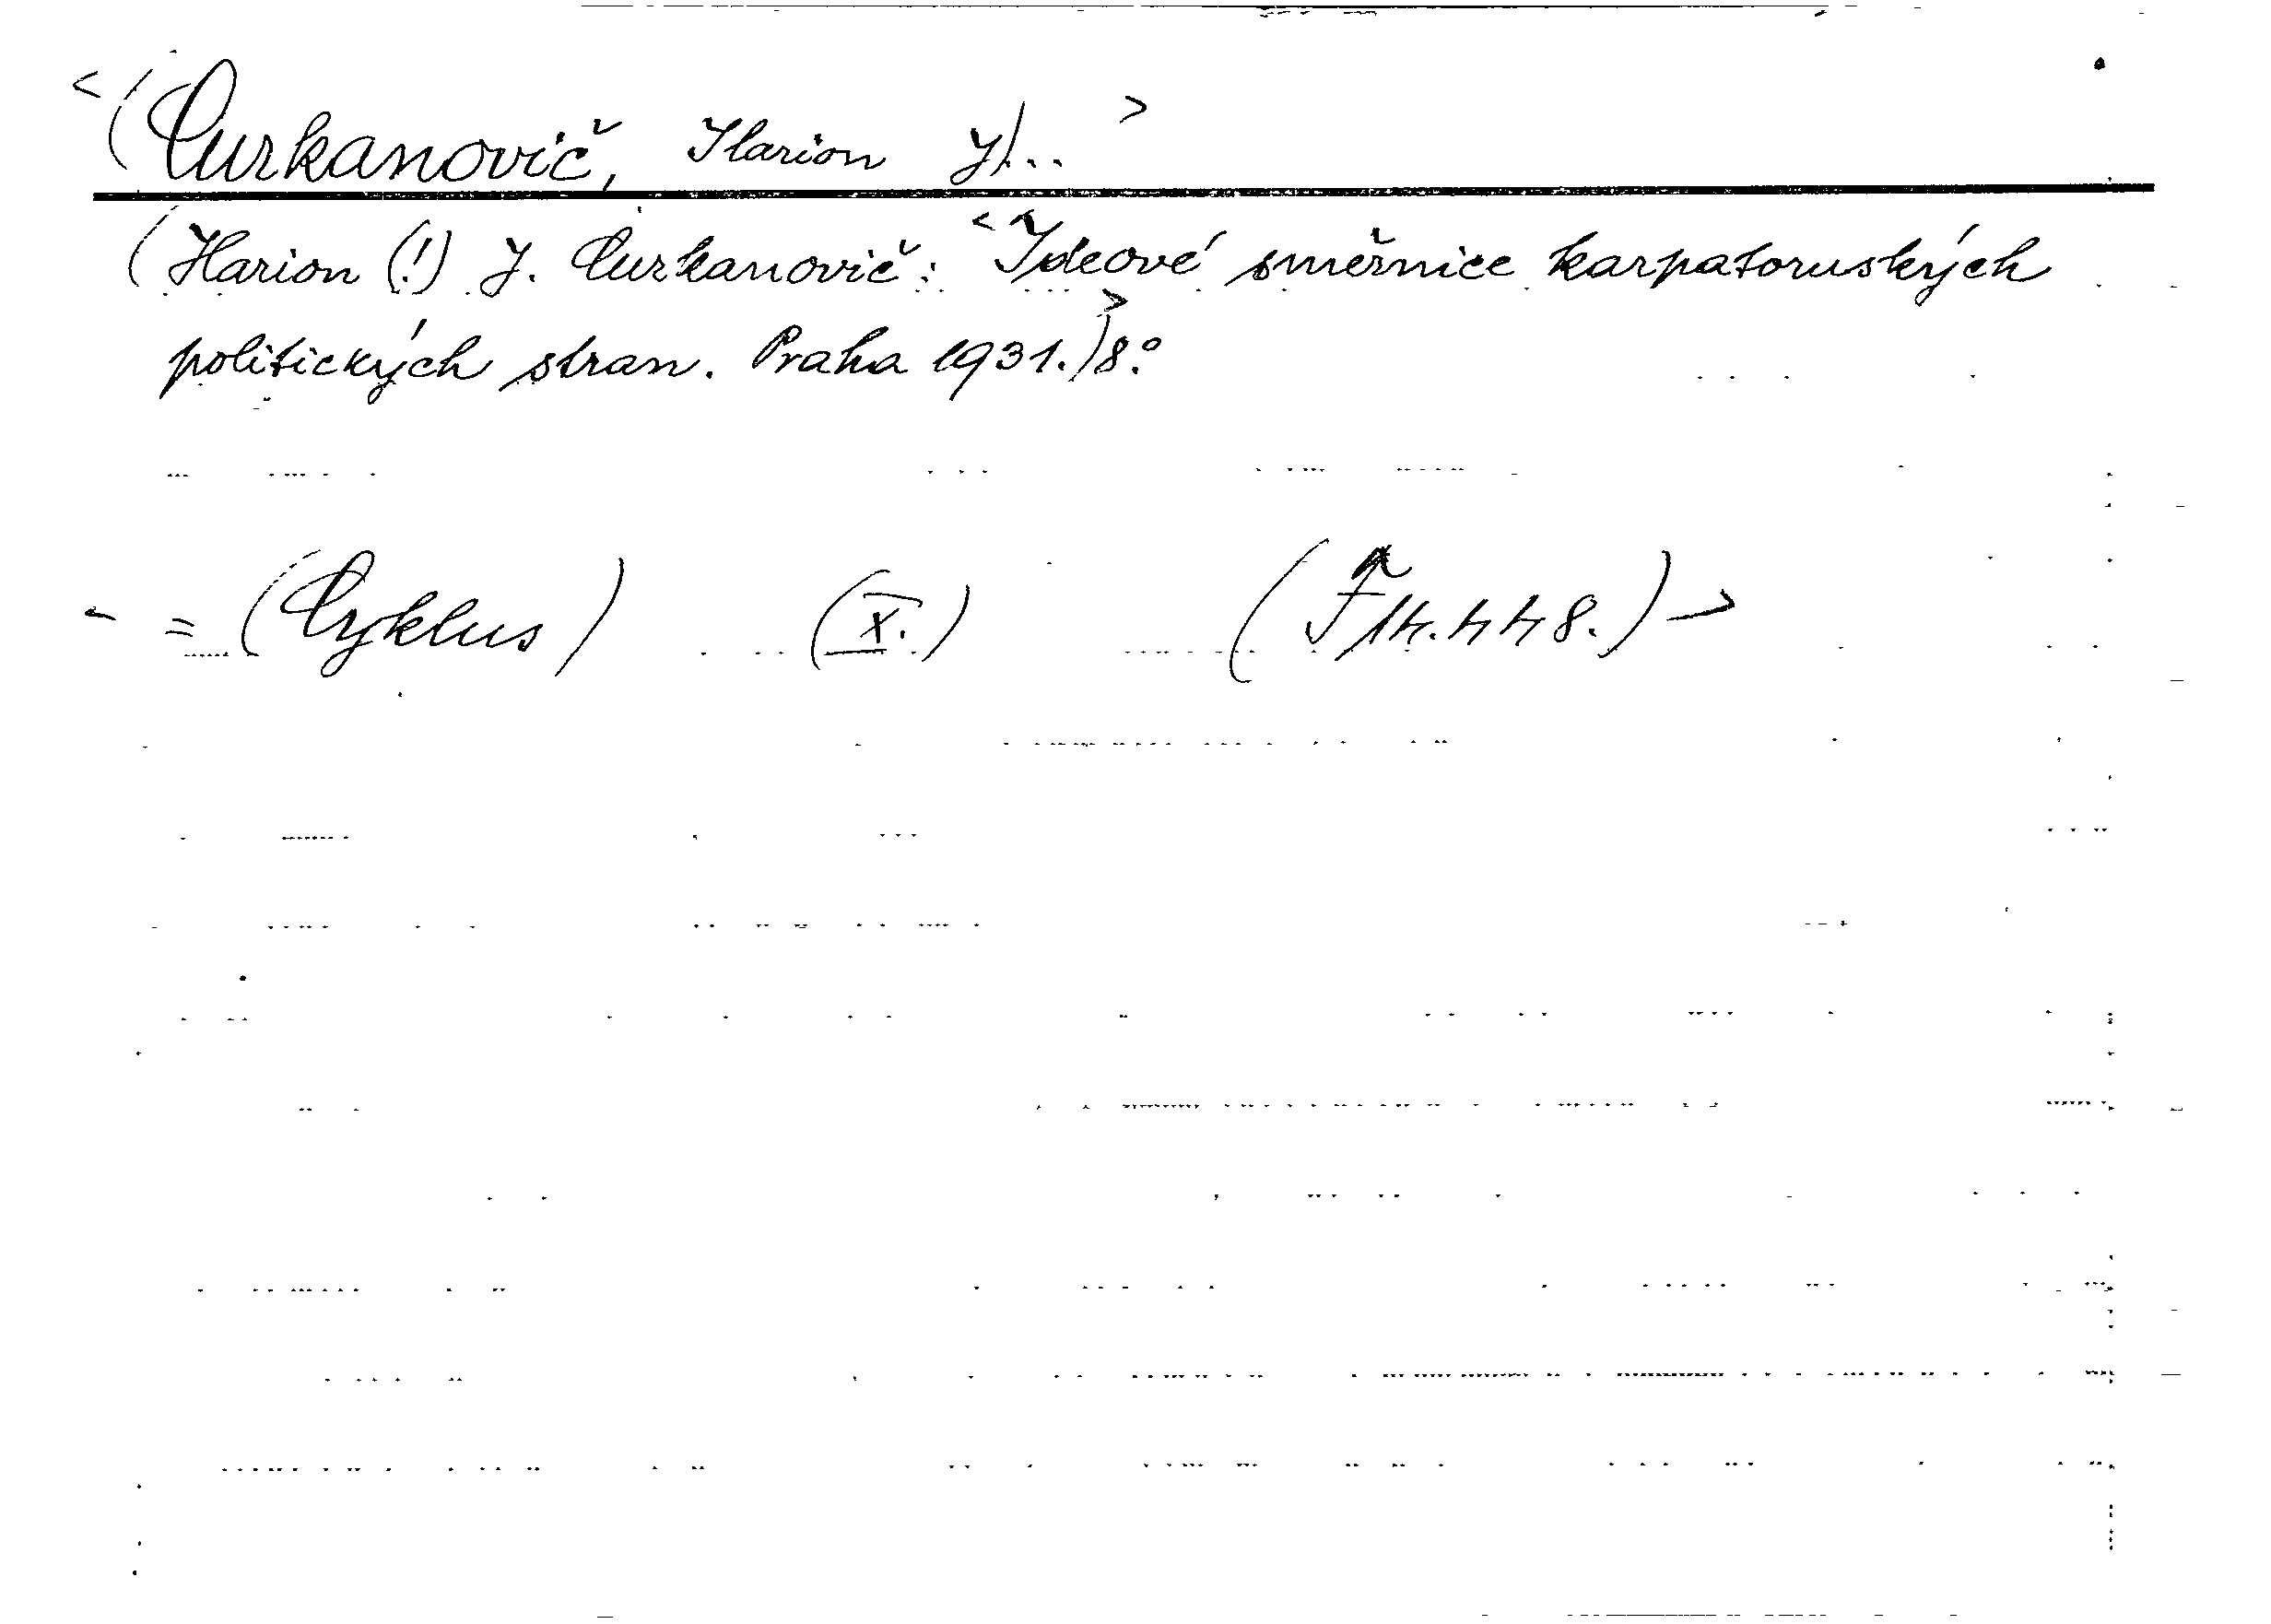 <(Curkanovič, Ilarion J)... >
(Ilarion (!) J. Curkanovič: <Ideové směrnice karpatoruských
politických stran.> Praha 1931.) 8°.
= (Cyklus) (X.) (F 14.448.)>